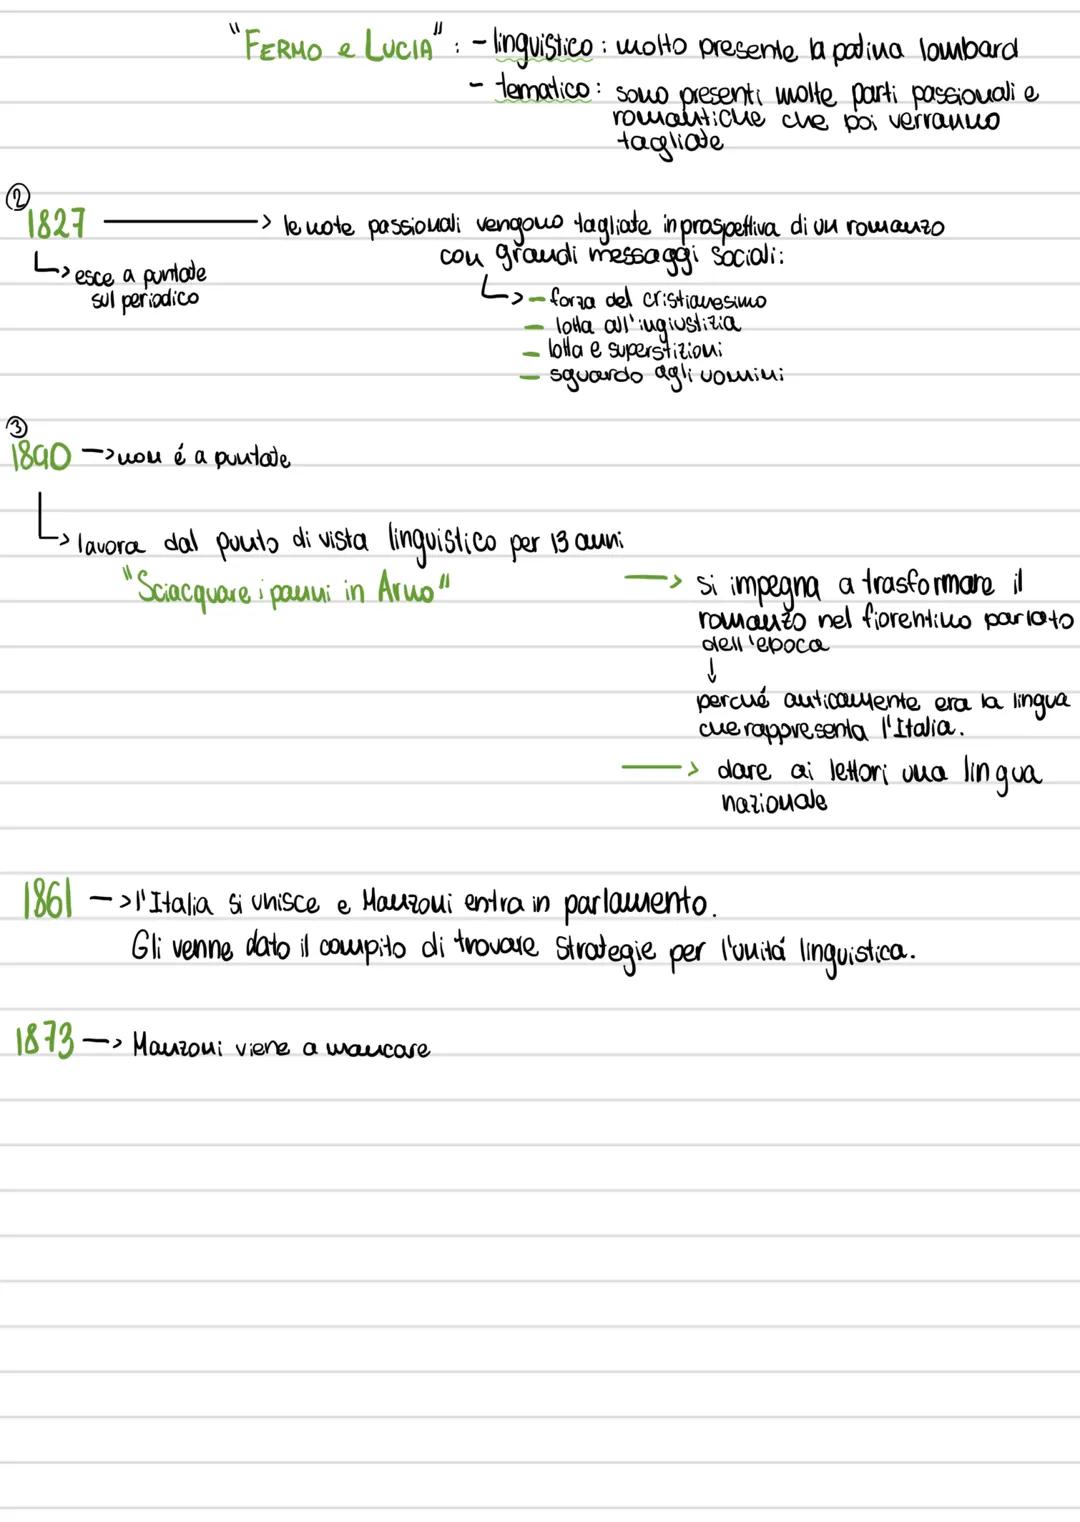 "FERMO e LUCIA" : - linguistico : molto presente la patina lombard
- tematico : sono presenti molte parti passionali e
romantiche che poi verranno
tagliate
②
1827 —> le note passionali vengono tagliate in prospettiva di un romanzo
con grandi messaggi sociali:
↳ esce a puntate
sul periodico
↳ - forza del cristianesimo
- lotta all'ingiustizia
- lotta e superstizioni
- sguardo agli uomini
③
1840 —> non é a puntate
↳ lavora dal punto di vista linguistico per 13 anni
"Sciacquare i panni in Arno"
—> si impegna a trasformare il
romanzo nel fiorentino parlato
dell'epoca
↓
perché anticamente era la lingua
che rappresenta l'Italia.
—> dare ai lettori una lingua
nazionale
1861 —> l'Italia si unisce e Manzoni entra in parlamento.
Gli venne dato il compito di trovare strategie per l'unitá linguistica.
1873 —> Manzoni viene a mancare